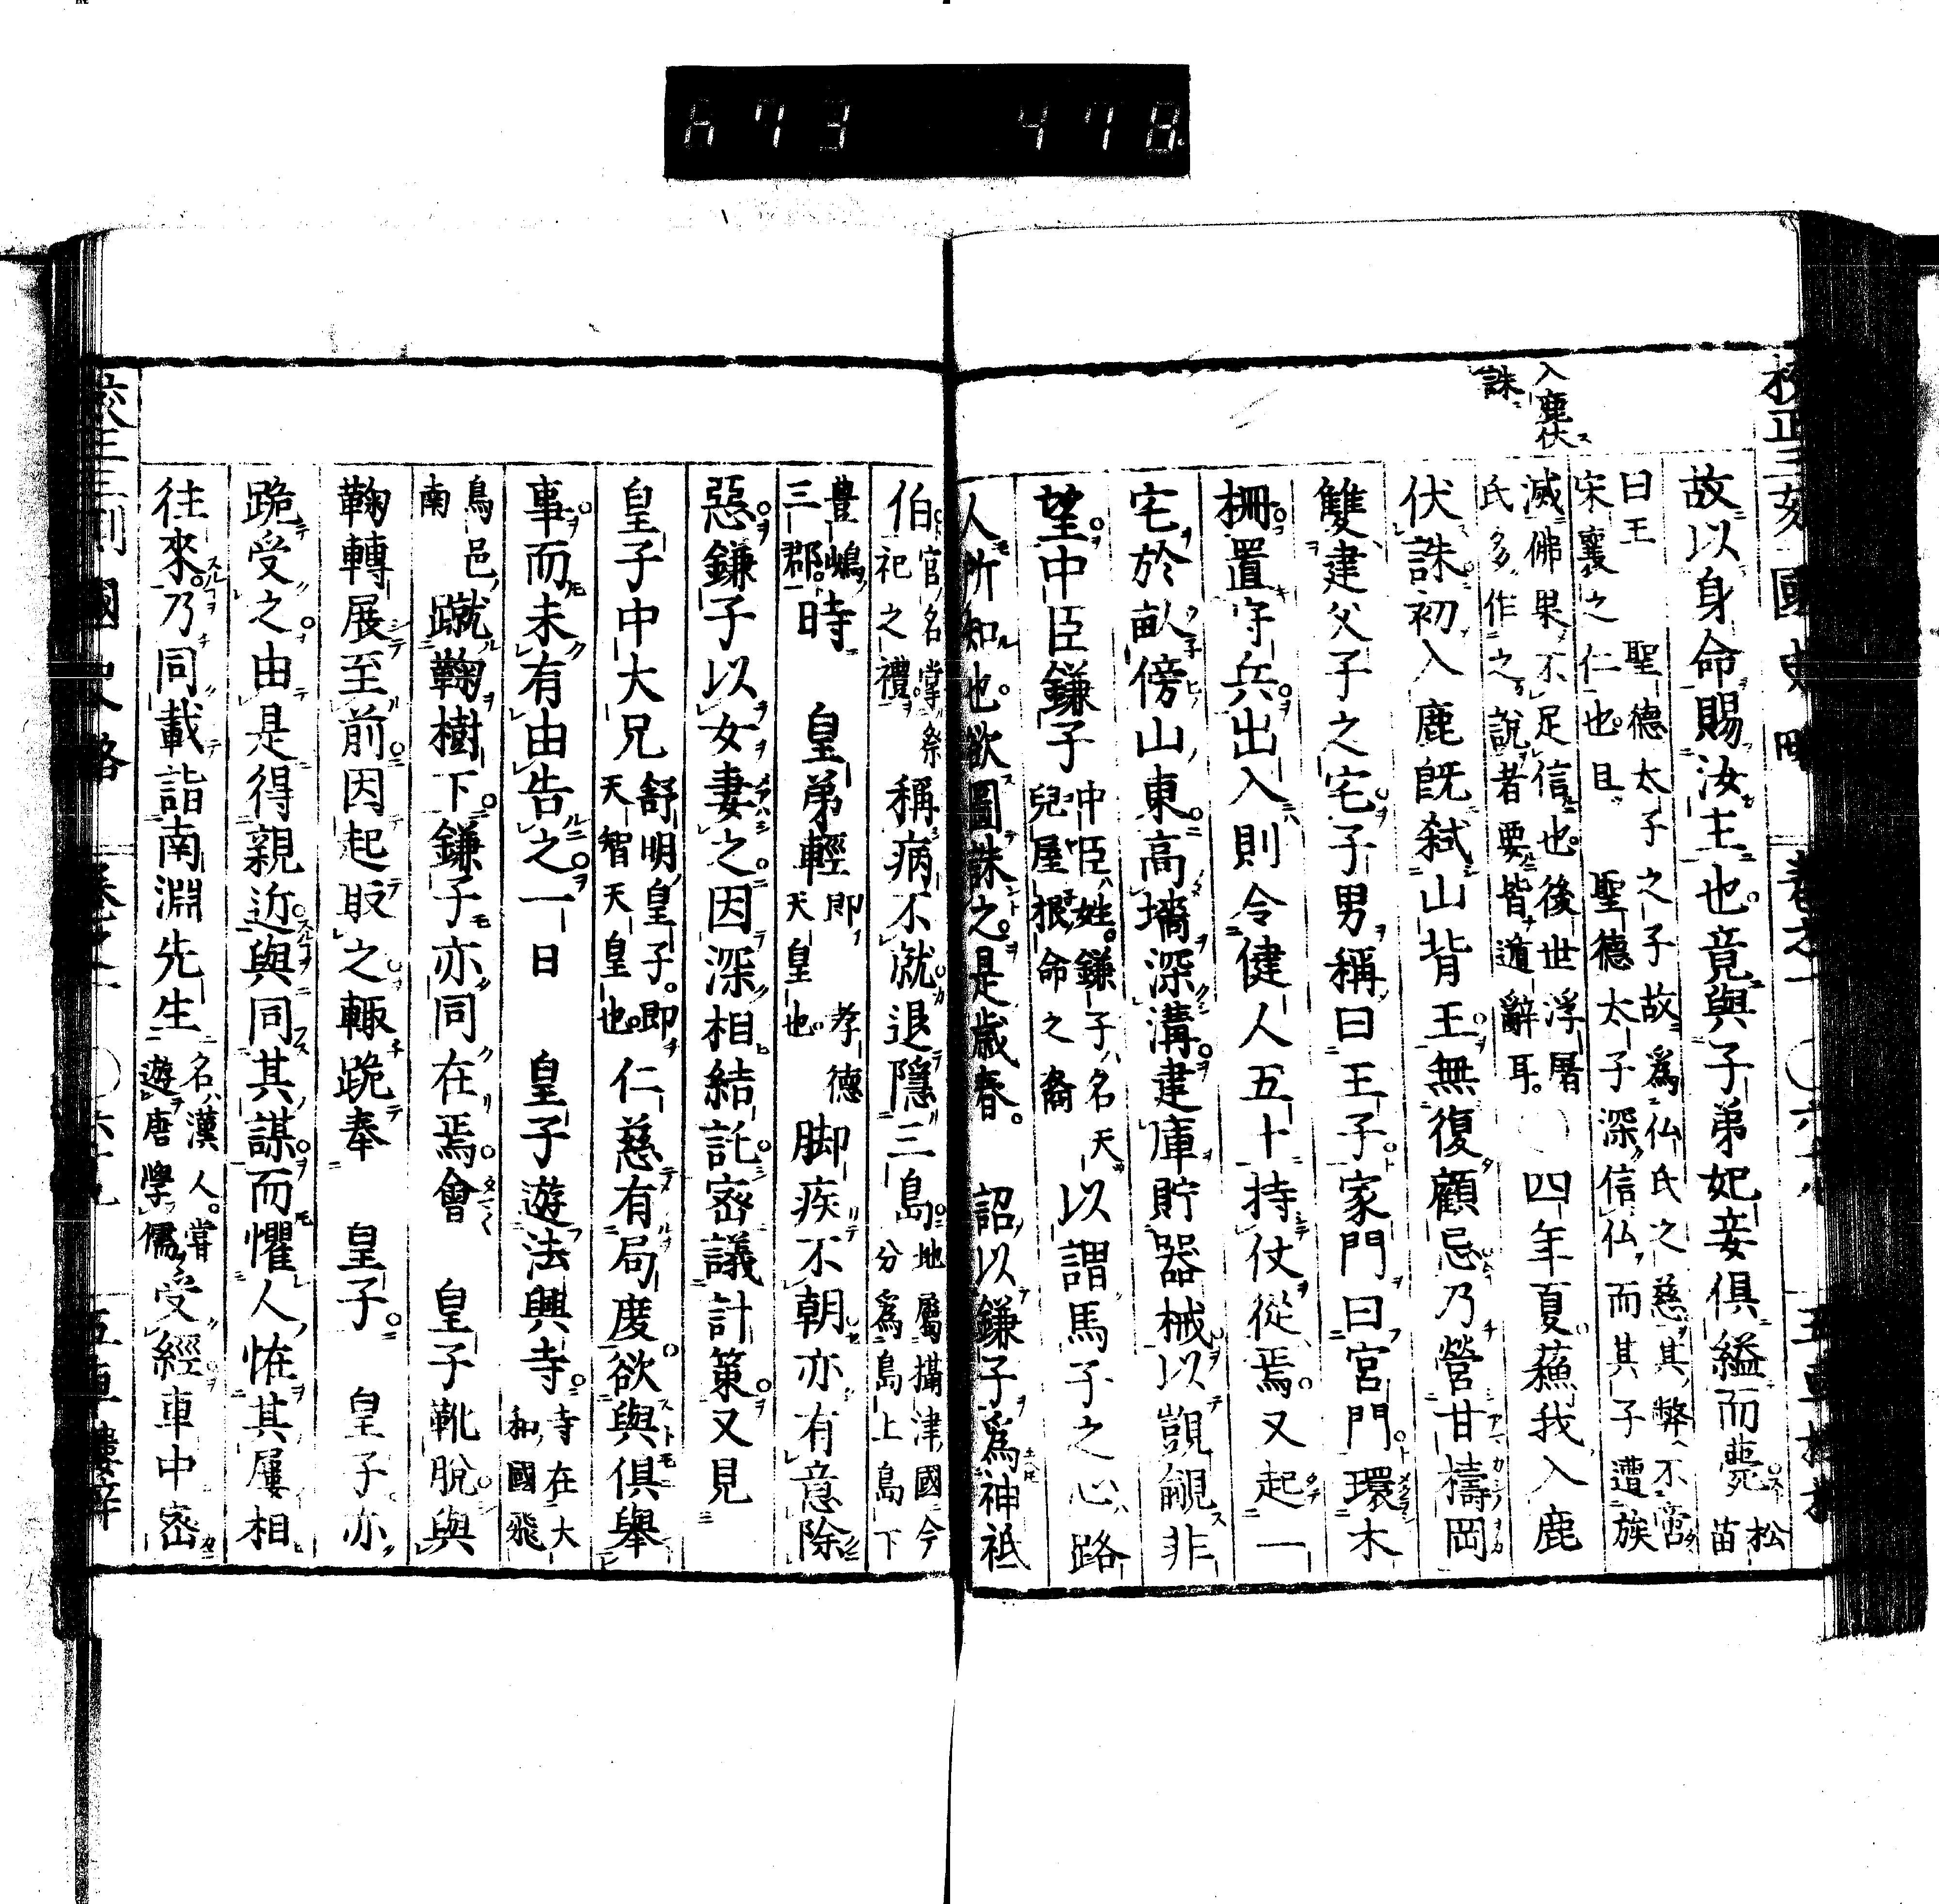 673 478
故以身命賜汝主也竟與子弟妃妾俱縊而薨松苗
曰王聖德太子之子故為仏氏之慈其弊不啻
宋襄之仁也且聖德太子深信仏而其子遭族
滅佛果不足信也後世浮屠
氏多作之說者要皆遁辭耳
四年夏蘓我入鹿
入鹿伏誅
伏誅初入鹿既弑山背王無復顧忌乃營甘檮岡
雙建父子之宅子男稱曰王子家門曰宮門環木
柵置守兵出入則令健人五十持仗從焉又起一
宅於畝傍山東高墻深溝建庫貯器械以覬覦非
望中臣鎌子中臣姓鎌子名天兒屋根命之裔以謂馬子之心路
人所知也欲圖誅之是歲春詔以鎌子為神祇
伯官名掌祭祀之禮稱病不就退隱三島地屬攝津國今分為島上島下
豊嶋三郡時皇弟輕即孝德天皇也脚疾不朝亦有意除
惡鎌子以女妻之因深相結託密議計策又見
皇子中大兄舒明皇子即天智天皇也仁慈有局度欲與俱舉
事而未有由告之一日皇子遊法興寺寺在大和國飛
鳥邑南蹴鞠樹下鎌子亦同在焉會皇子靴脫與
鞠轉展至前因起取之輙跪奉皇子皇子亦
跪受之由是得親近與同其謀而懼人恠其屢相
往來乃同載詣南淵先生名漢人嘗遊唐學儒受經車中密
國史略